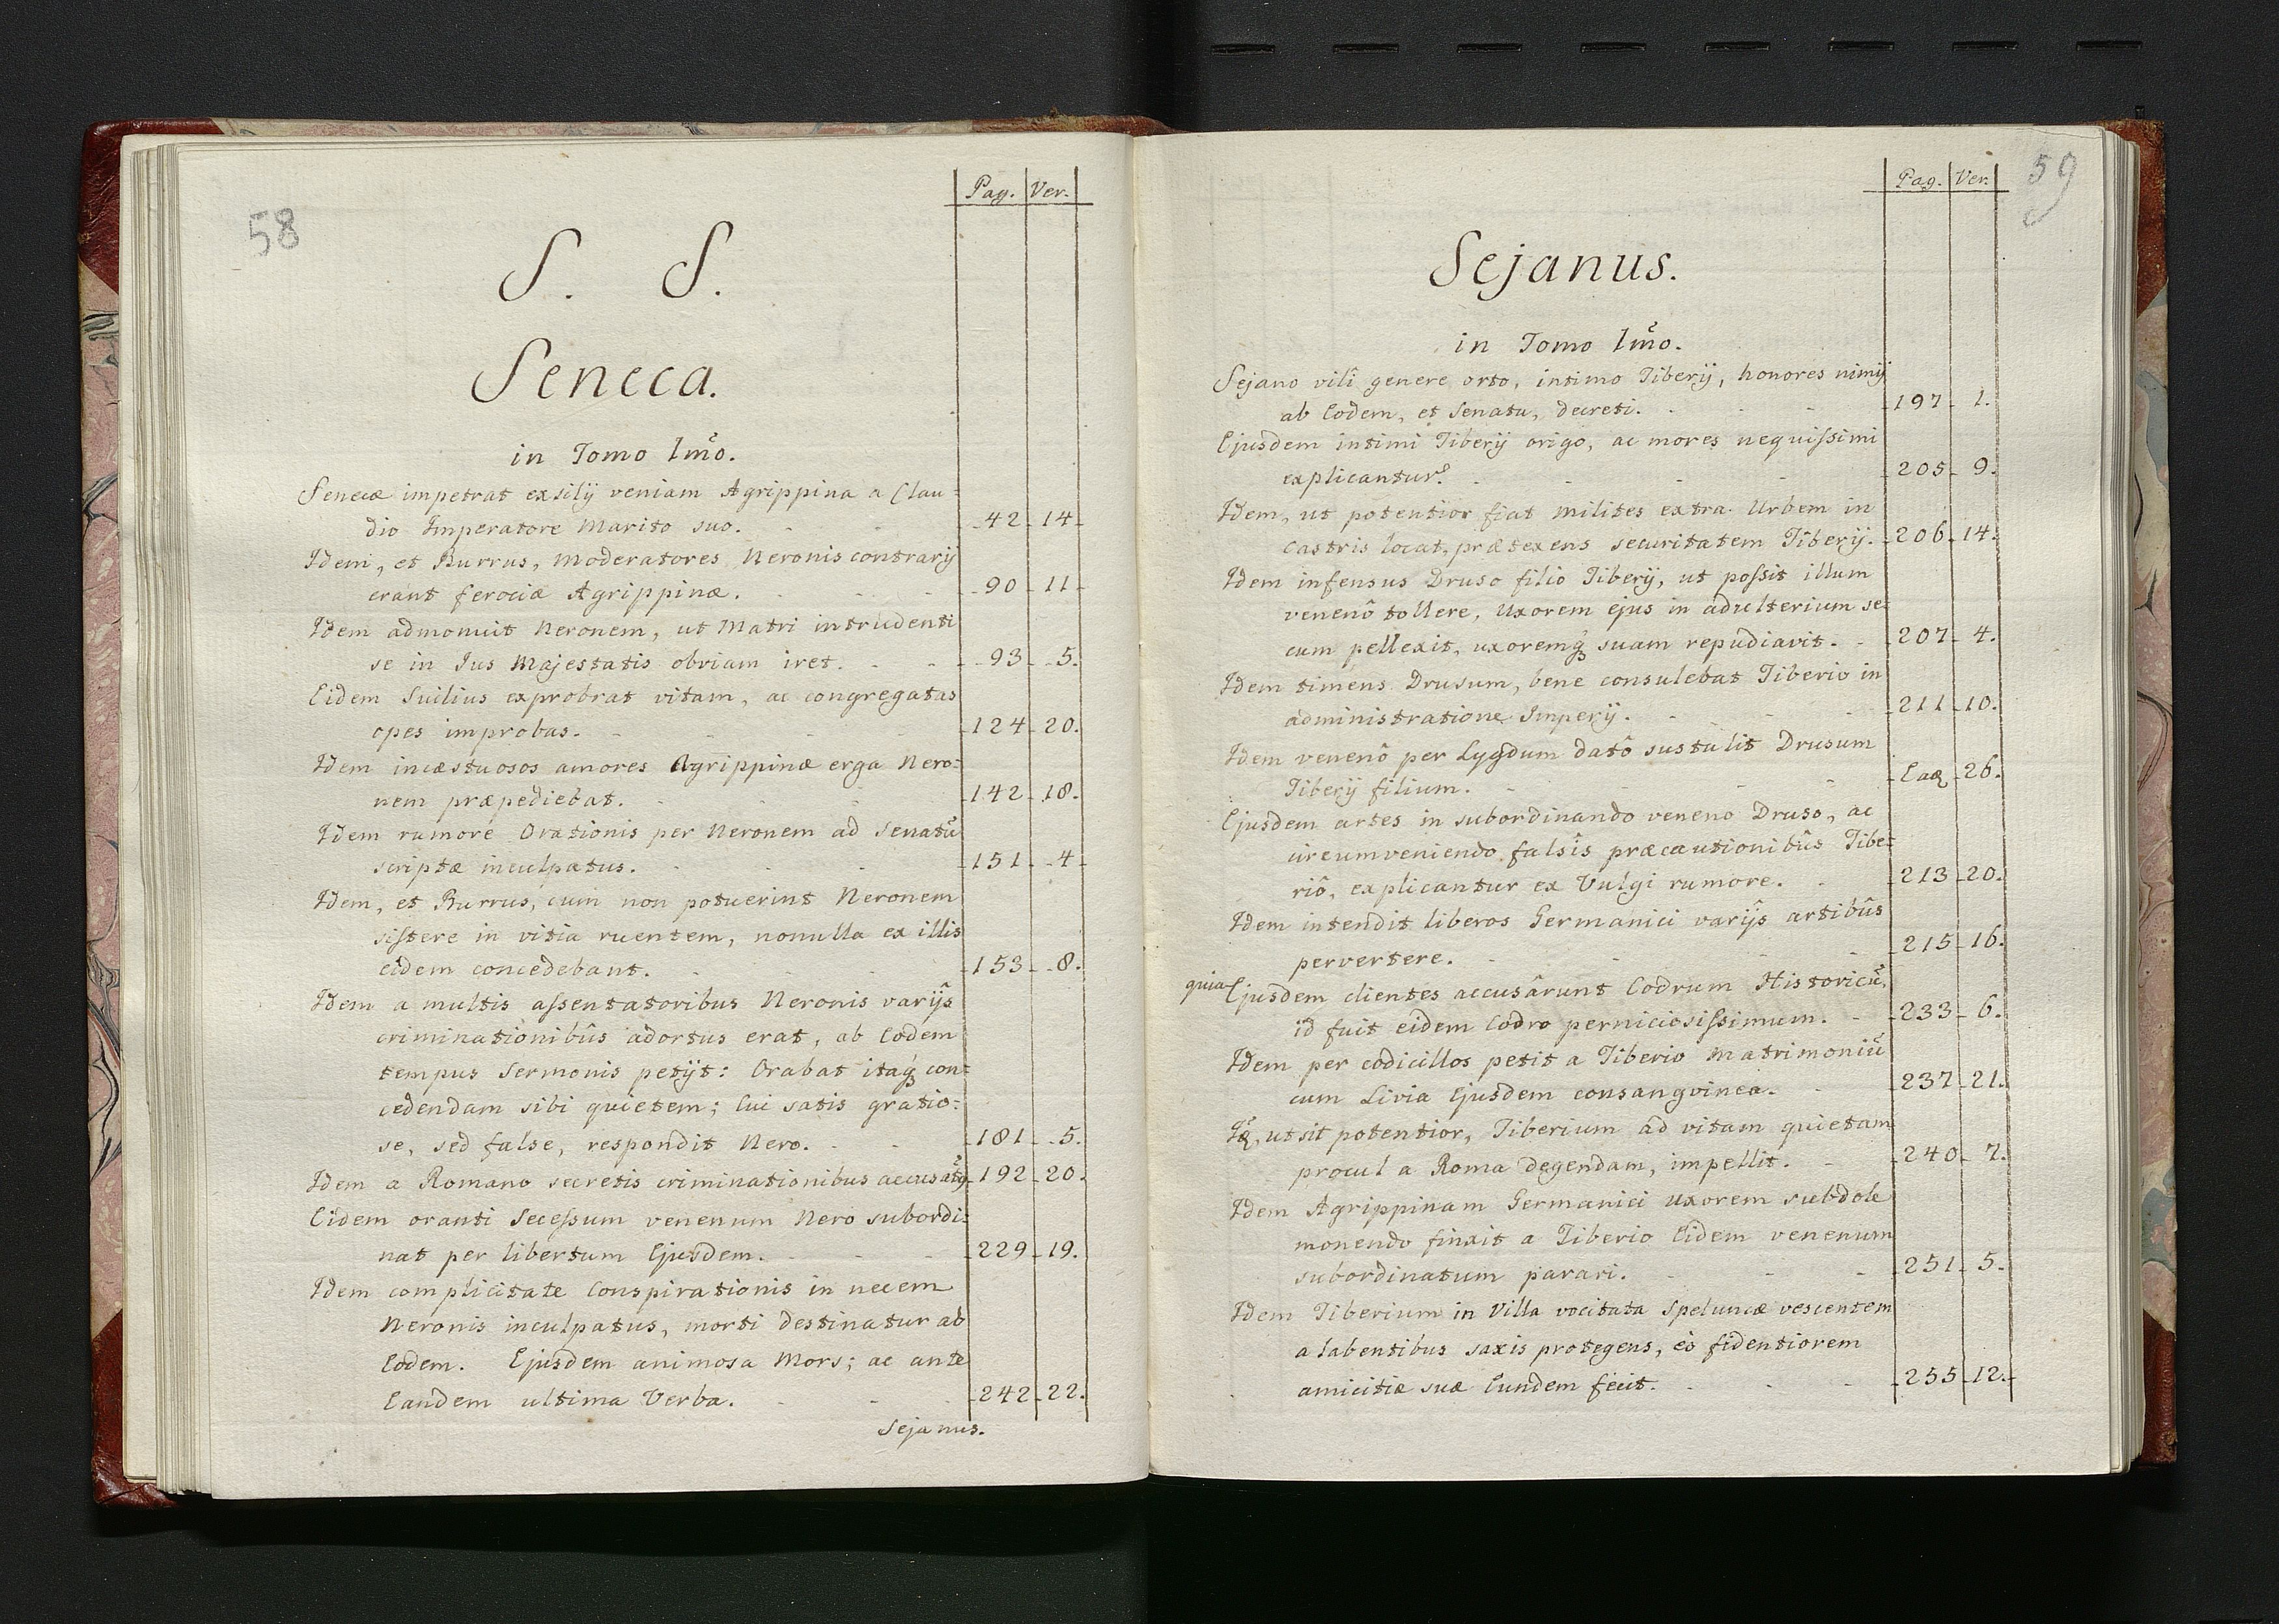 58
Pag. Ver.
S. S.
Seneca.
in Tomo Imo.
Senecæ impetrat exsilij veniam Agrippina a Clau=
dio Imperatore Marito suo. 42 14
Idem, et Burrus, Moderatores Neronis contrarij
erant ferociæ Agrippinæ. 90 11
Idem admonuit Neronem, ut Matri intrudenti
se in Jus Majestatis obviam iret. 93 5.
Eidem Suilius exprobrat vitam, ac congregatas
opes improbas. 124 20.
Idem incæstuosos amores Agrippinæ erga Nero=
nem præpediebat. 142 18.
Idem rumore Orationis per Neronem ad Senatũ
scriptæ inculpatus. 151 4
Idem, et Burrus, cum non potuerint Neronem
sistere in vitia ruentem, nonulla ex illis
eidem concedebant. 153 8.
Idem a multis assentatoribus Neronis varijs
criminationibûs adortus erat, ab Eodem
tempus Sermonis petijt: Orabat itaq́ con=
cedendam sibi quietem; Cui satis gratio=
se, sed false, respondit Nero. 181 5.
Idem a Romano secretis criminationibus accusatq 192 20.
Eidem oranti Secessum venenum Nero subordi=
nat per libertum Ejusdem. 229 19.
Idem complicitate Conspirationis in necem
Neronis inculpatus, morti destinatur ab
Eodem. Ejusdem animosa Mors; ac ante
Eandem ultima Verba. 242 22.
Sejanus.
Pag. Ver.
59
Sejanus.
in Tomo Imo.
Sejano vilî genere orto, intimo Tiberij, honores nimij
ab Eodem, et Senatu, decreti. 197 1.
Ejusdem intimi Tiberij origo, ac mores nequissimi
explicantur. 205 9.
Idem, ut potentior fiat milites extra Urbem in
Castris locat, prætexens securitatem Tiberij. 206 14.
Idem infensus Druso filio Tiberij, ut possit illum
venenô tollere, Uxorem ejus in adulterium se=
cum pellexit, uxoremq́ suam repudiavit. 207 4.
Idem timens Drusum, bene consulebat Tiberio in
administratione Imperij. 211 10.
Idem venenô per Lygdum datô sustulit Drusum
Tiberij filium. Eaq 26.
Ejusdem artes in subordinando veneno Druso, ac
circumveniendo falsîs præcautionibûs Tibe=
riô, explicantur ex Vulgi rumore. 213 20.
Idem intendit liberos Germanici varijs artibûs
pervertere. 215 16.
quia Ejusdem clientes accusârunt Codrum Historicũ,
id fuit eidem Codro perniciosissimum. 233 6.
Idem per codicillos petit a Tiberio Matrimoniũ
cum Livia Ejusdem consangvinea. 237 21.
Iq, ut sit potentior, Tiberium ad vitam quietam
procul a Roma degendam, impellit. 240 7.
Idem Agrippinam Germanici uxorem subdole
monendo finxit a Tiberio Eidem venenum
subordinatum parari. 251 5.
Idem Tiberium in Villa vocitata Speluncæ vescentem
a labentibus saxis protegens, eò fidentiorem
amicitiæ suæ Eundem fecit. 255 12.